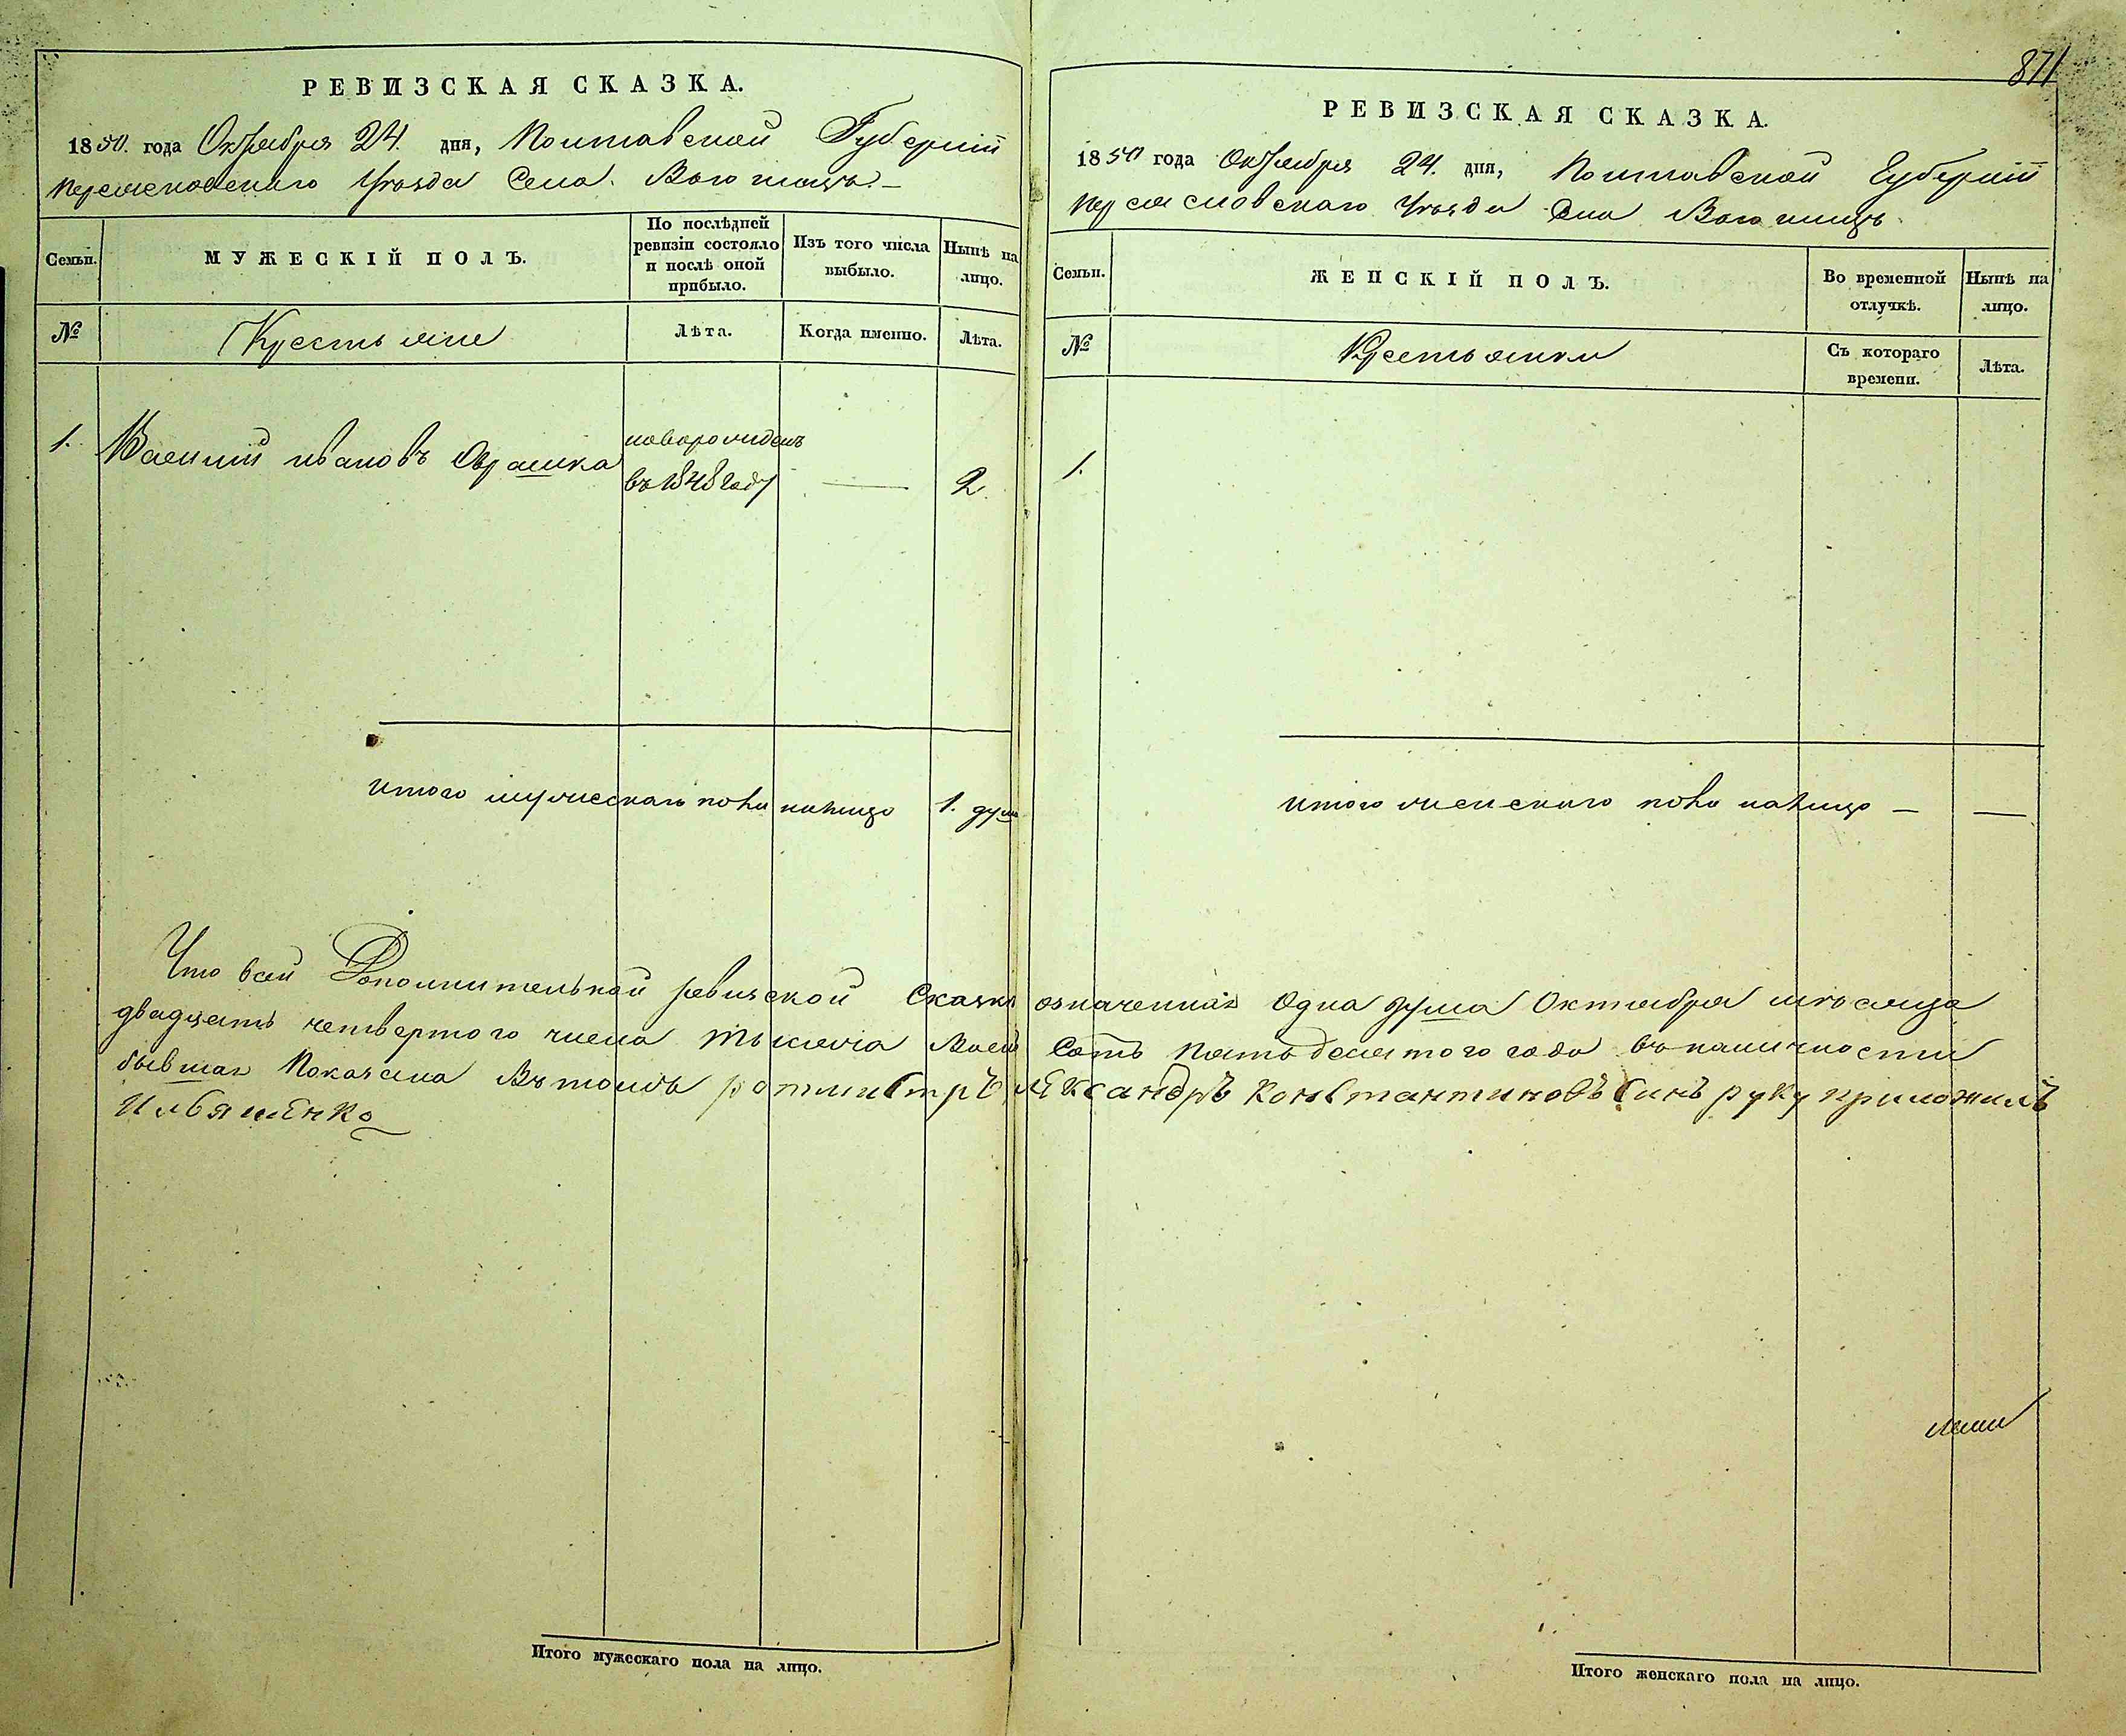 РЕВИЗСКАЯ СКАЗКА.
1850. года Октября 24. дня, Полтавской Губернии
Переяславскаго Уѣзда Села
Семьи. МУЖЕСКІЙ ПОЛЪ. По послѣдней ревизіи состояло и послѣ оной прибыло. Изъ того числа выбыло. Нынѣ на лицо.
№ Крестьяне Лѣта. Когда именно. Лѣта.
1. Василий Ивановъ новорожденъ
въ 1848 году — 2.
итого мужескаго пола налицо 1. душа
871
РЕВИЗСКАЯ СКАЗКА.
1850 года Октября 24. дня, Полтавской Губернии
Переясловскаго Уѣзда Села
Семьи. ЖЕНСКІЙ ПОЛЪ. Во временной отлучкѣ. Нынѣ на лицо.
№ Крестьянки Съ котораго времени. Лѣта.
1.
итого женскаго пола налицо — —
Что всей Дополнительной ревизской Сказкѣ означенная Одна душа Октября мѣсяца
двадцать четвертого числа тысяча Восем Сотъ Пятьдесятого года въ наличности
бывшая Показана Вътомъ ротмистръ Александръ Константиновъ Синъ руку приложилъ
Ильяшенко
Итого мужескаго пола на лицо.
Итого женскаго пола на лицо.